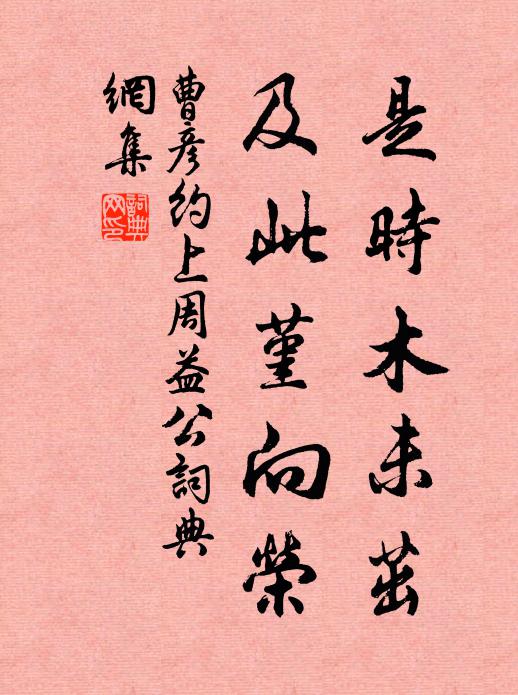 是時木未茁
及此堇向榮
曹彥約上周益公詞典
網集
詞典網印